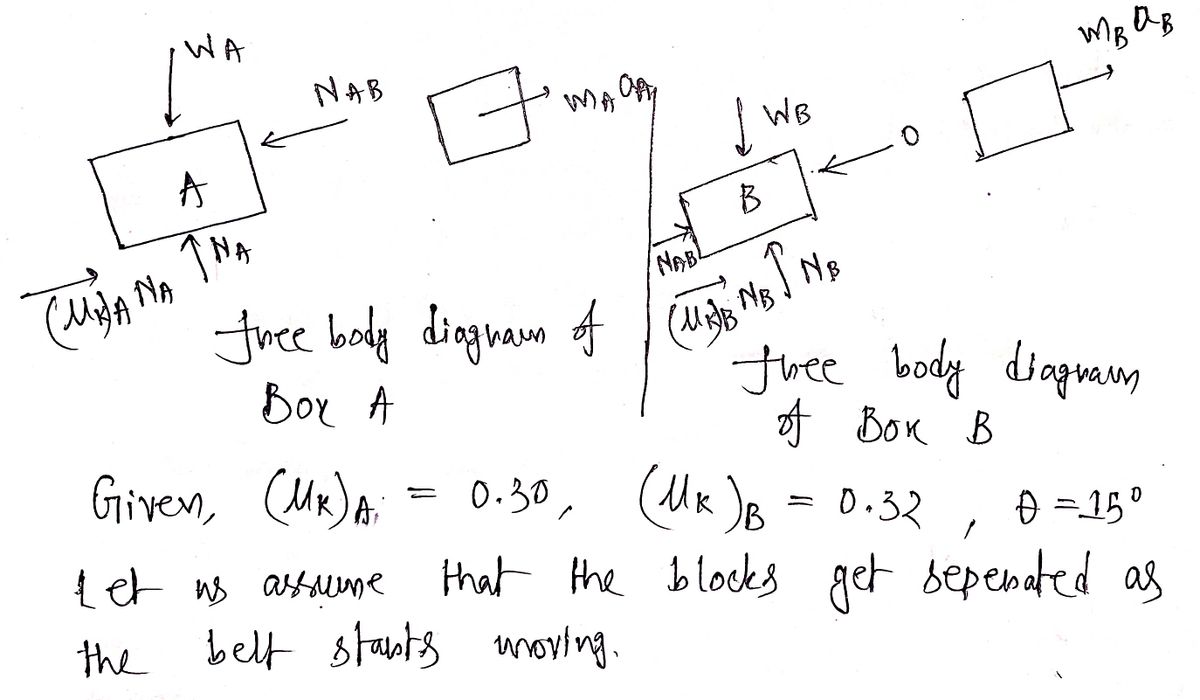 W_A
N_AB
m_A a_A
A
N_A
(μ_K)_A N_A
free body diagram of
Box A
m_B a_B
W_B
0
B
N_AB
N_B
(μ_K)_B N_B
free body diagram
of Box B
Given, (μ_K)_A = 0.30, (μ_K)_B = 0.32, θ = 15°
Let us assume that the blocks get seperated as
the belt starts moving.